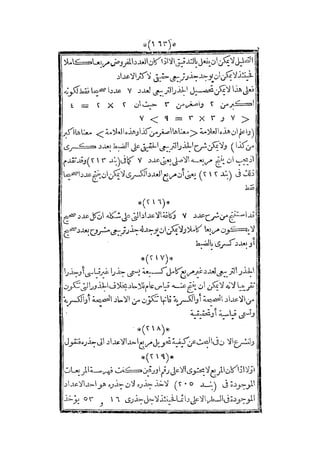 *(١٦٣)*
التحليل لا يمكن ان يفعل بالتدقيق الا اذا كان العدد المفروض مربعا كاملا
فحينئذ لا يمكن ان يوجد جذر تربيعى حقيقى لاكثر الاعداد
فعلى هذا لا يمكن تحصيل الجذر التربيعى لعدد ٧ عددا صحيحا فقط لكونه
اكبر من ٢ واصغر من ٣ حيث ان ٢ × ٢ = ٤
> ٧ و ٣ × ٣ = ٩ < ٧
(واعلم ان هذه العلامة > معناها اصغر من كذا وهذه العلامة < معناها اكبر
من كذا) ولا يمكن شرح الجذر التربيعى الحقيقى على الضبط بعدد كسرى
اذ يجب ان ينتج مربعه الاصلى يعنى عدد ٧ كما فى (بند ٢١٣) وقد تقدم
ذلك فى (بند ٢١٢) يعنى أن مربع العدد الكسرى لا يمكن ان ينتج عددا صحيحا
فقط
*(٢١٦)*
قد استنتج من شرح عدد ٧ وكافة الاعداد التى على شكله ان كل عدد صحيح
لا يكون مربعا كاملا ولا يمكن ان يوجد له جذر تربيعى مشروح بعدد صحيح
أو بعدد كسرى بالضبط
*(٢١٧)*
الجذر التربيعى لعدد غير مربع كامل كسبعة يسمى جذرا غير قياسى أو جذرا
تقريبيا لانه لا يمكن ان ينتج عنه قياس عام للآحاد بخلاف الجذور التى تتكون
من الاعداد الصحيحة أو الكسرية فانها تتكون من الآحاد الصحيحة أو الكسرية
وتسمى قياسية أو حقيقية
*(٢١٨)*
ولنشرع الآن فى البحث عن كيفية تحويل مربع احد الاعداد الى جذره فنقول
*(٢١٩)*
اولا اذا كان المربع لا يحتوى الا على رقم او رقمين كفت فهرسة المربعات
الموجودة فى (بند ٢٠٥) لاخذ جذره لان جذره هو احد الاعداد
الموجودة فى السطر الاعلى دائما فحينئذ لاجل جذرى ١٦ و ٥٣ يؤخذ